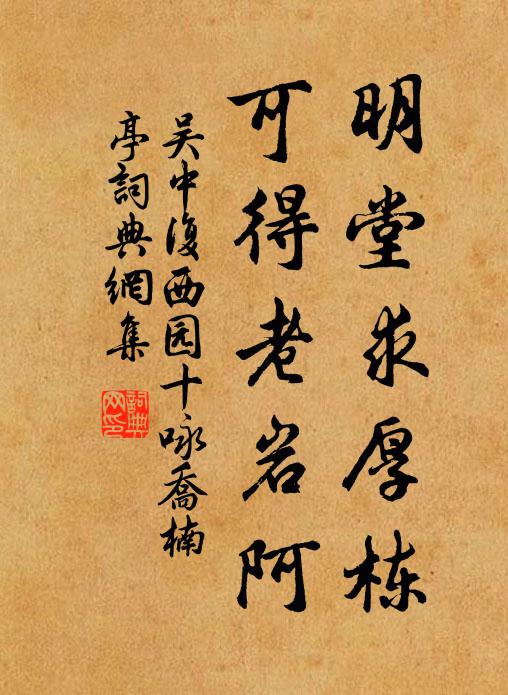 明堂求厚栋
可得老岩阿
吴中復西园十咏喬楠
亭詞典網集
詞典
网印